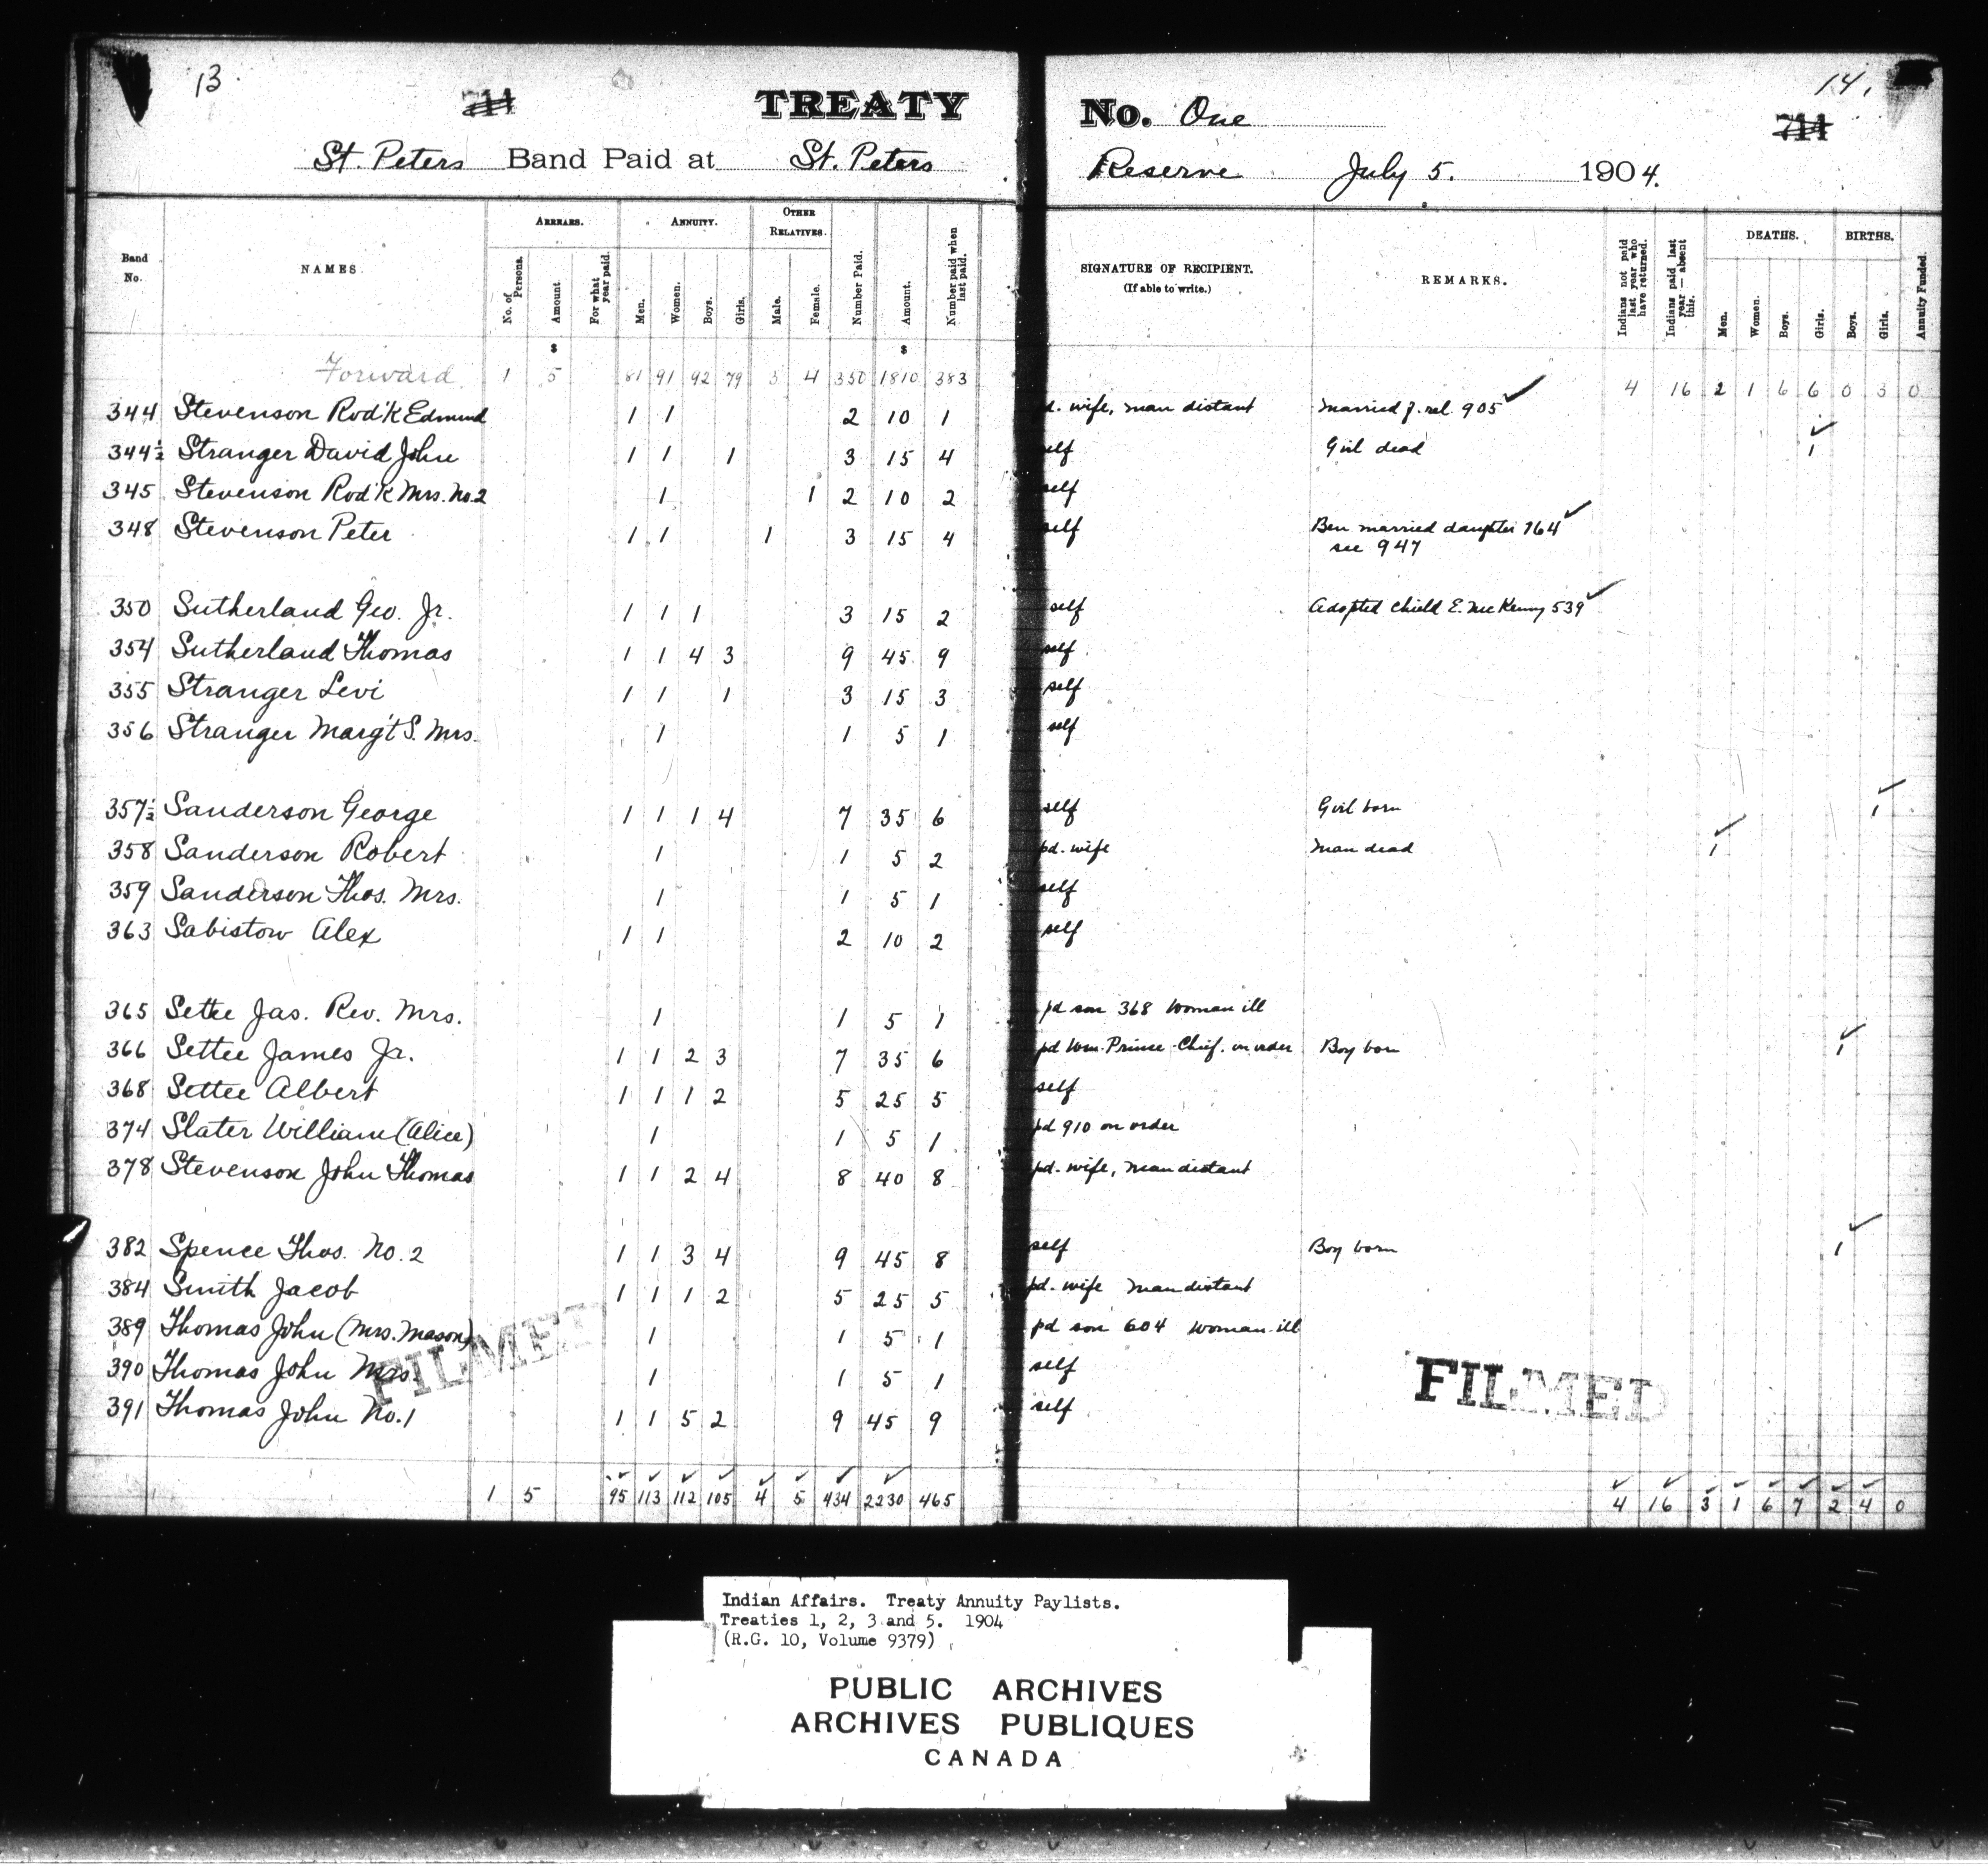 13
711
TREATY
St. Peters Band Paid at St. Peters
Band No. NAMES. ARREARS. No. of Persons. Amount. For what year paid. ANNUITY. Men. Women. Boys. Girls. OTHER RELATIVES. Male. Female. Number Paid. Amount. Number paid when last paid.
$ $
Forward 1 5 81 91 92 79 3 4 350 1810 383
344 Stevenson Rod'k Edmund 1 1 2 10 1
344½ Stranger David John 1 1 1 3 15 4
345 Stevenson Rod'k Mrs. No. 2 1 1 2 10 2
348 Stevenson Peter 1 1 1 3 15 4
350 Sutherland Geo. Jr. 1 1 1 3 15 2
354 Sutherland Thomas 1 1 4 3 9 45 9
355 Stranger Levi 1 1 1 3 15 3
356 Stranger Marg't S. Mrs. 1 1 5 1
357½ Sanderson George 1 1 1 4 7 35 6
358 Sanderson Robert 1 1 5 2
359 Sanderson Thos. Mrs. 1 1 5 1
363 Sabistow Alex 1 1 2 10 2
365 Settee Jas. Rev. Mrs. 1 1 5 1
366 Settee James Jr. 1 1 2 3 7 35 6
368 Settee Albert 1 1 1 2 5 25 5
374 Slater William (Alice) 1 1 5 1
378 Stevenson John Thomas 1 1 2 4 8 40 8
382 Spence Thos. No. 2 1 1 3 4 9 45 8
384 Smith Jacob 1 1 1 2 5 25 5
389 Thomas John (Mrs. Mason) 1 1 5 1
390 Thomas John Mrs. 1 1 5 1
391 Thomas John No. 1 1 1 5 2 9 45 9
FILMED
1 5 95 113 112 105 4 5 434 2230 465
14.
No. One
711
Reserve July 5. 1904.
SIGNATURE OF RECIPIENT. (If able to write.) REMARKS. Indians not paid last year who have returned. Indians paid last year — absent this. DEATHS. Men. Women. Boys. Girls. BIRTHS. Boys. Girls. Annuity Funded.
4 16 2 1 6 6 0 3 0
d. wife, man distant married f. rel. 905
self Girl dead 1
self
self Ben married daughter 164
see 947
self Adopted child E. McKenny 539
self
self
self
self Girl born 1
pd. wife Man dead 1
self
self
pd son 368 Woman ill
pd Wm. Prince Chief. on order Boy born 1
self
pd 910 on order
pd. wife, man distant
self Boy born 1
pd. wife man distant
pd son 604 woman ill
self
self
FILMED
4 16 3 1 6 7 2 4 0
Indian Affairs. Treaty Annuity Paylists.
Treaties 1, 2, 3 and 5. 1904
(R.G. 10, Volume 9379)
PUBLIC ARCHIVES
ARCHIVES PUBLIQUES
CANADA